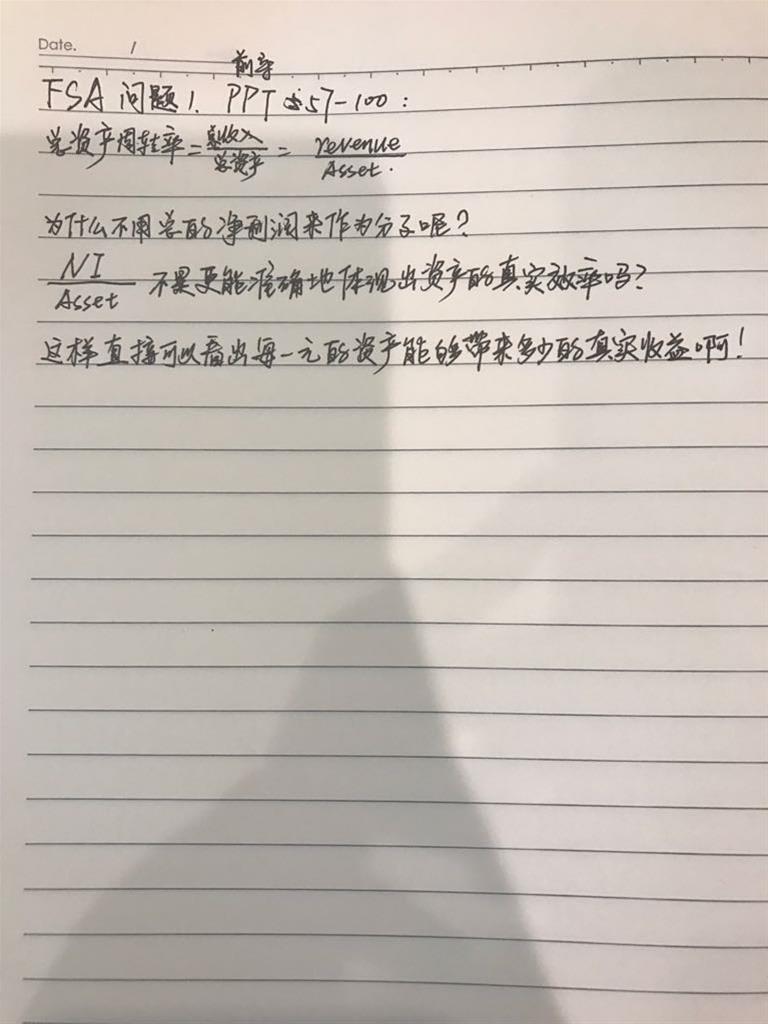 Date. /
前导
FSA 问题1. PPT 57-100:
总资产周转率=总收入/总资产= revenue/Asset.
为什么不用总的净利润来作为分子呢?
NI/Asset 不是更能准确地体现出资产的真实效率吗?
这样直接可以看出每一元的资产能带来多少的真实收益啊!